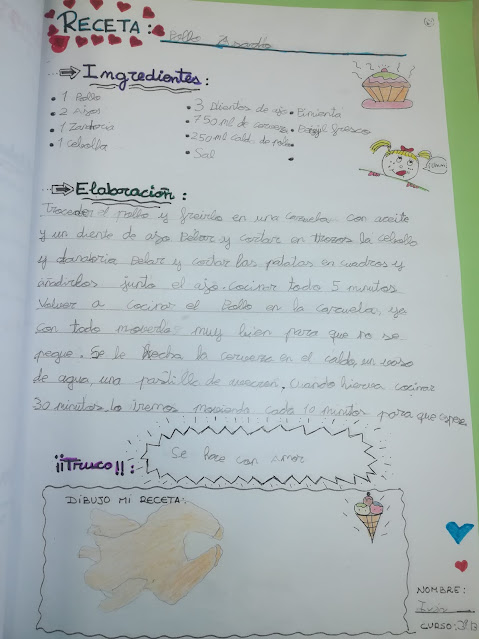 RECETA: Pollo Asado
Ingredientes:
• 1 Pollo
• 2 Ajos
• 1 Zanaoria
• 1 Cebolla
• 3 Dientes de ajo
• 750 ml de cerveza
• 250 ml cald. de pollo
• Sal
• Pimienta
• Perejil fresco
Elaboración:
Trocear el pollo y freirlo en una cazuela con aceite
y un diente de ajo. Pelar y cortar en trozos la cebolla
y zanaoria. Pelar y cortar las patatas en cuadros y
añadirlos junto el ajo. Cocinar todo 5 minutos
Volver a cocinar el Pollo en la cazuela, ya
con todo moverlo muy bien para que no se
pegue. Se le hecha la cerveza en el caldo, un vaso
de agua, una pastilla de . Cuando hierva cocinar
30 minutos, lo iremos moviendo cada 10 minutos para que espese.
¡¡Truco!!:
Se hace con amor
DIBUJO MI RECETA:
NOMBRE:
Ivan
CURSO: 3ºB